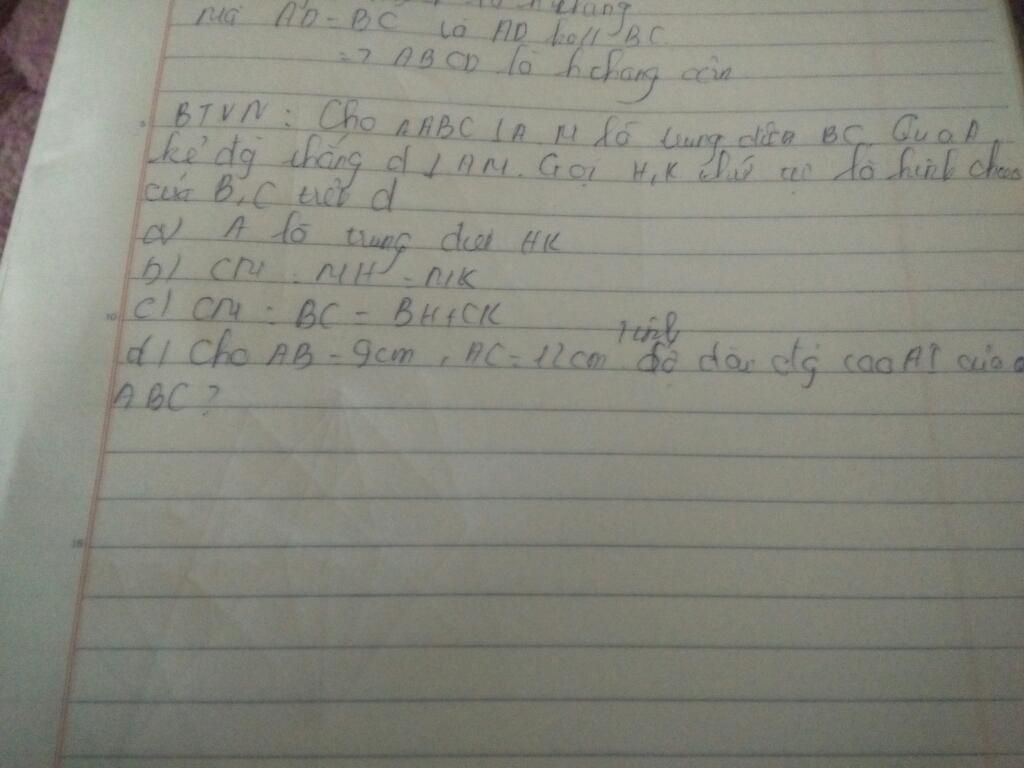 là h thang
mà AD = BC và AD ko // BC
=> ABCD là h thang cân
BTVN: Cho △ABC ⊥ A. M là trung điểm BC. Qua A
kẻ đg thẳng d ⊥ AM. Gọi H, K thứ tự là hình chiếu
của B, C trên d
a) A là trung điểm HK
b) CM: MH = MK
c) CM: BC = BH + CK
Tính
d) Cho AB = 9cm, AC = 12cm độ dài đg cao AI của △
ABC?
10
15